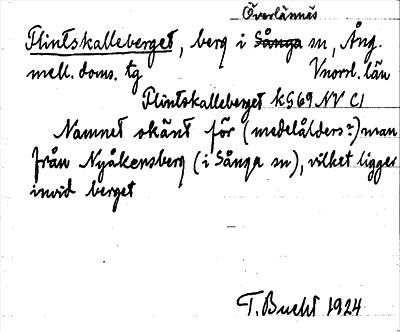 Överlännäs
Flintskalleberget, berg i Sånga sn, Ång.
mell. doms. tg Vnorrl. län
Flintskalleberget kG69 NV C1
Namnet okänt för (medelålders?) man
från Nyåkersberg (i Sånga sn), vilket ligger
invid berget
T. Bucht 1924